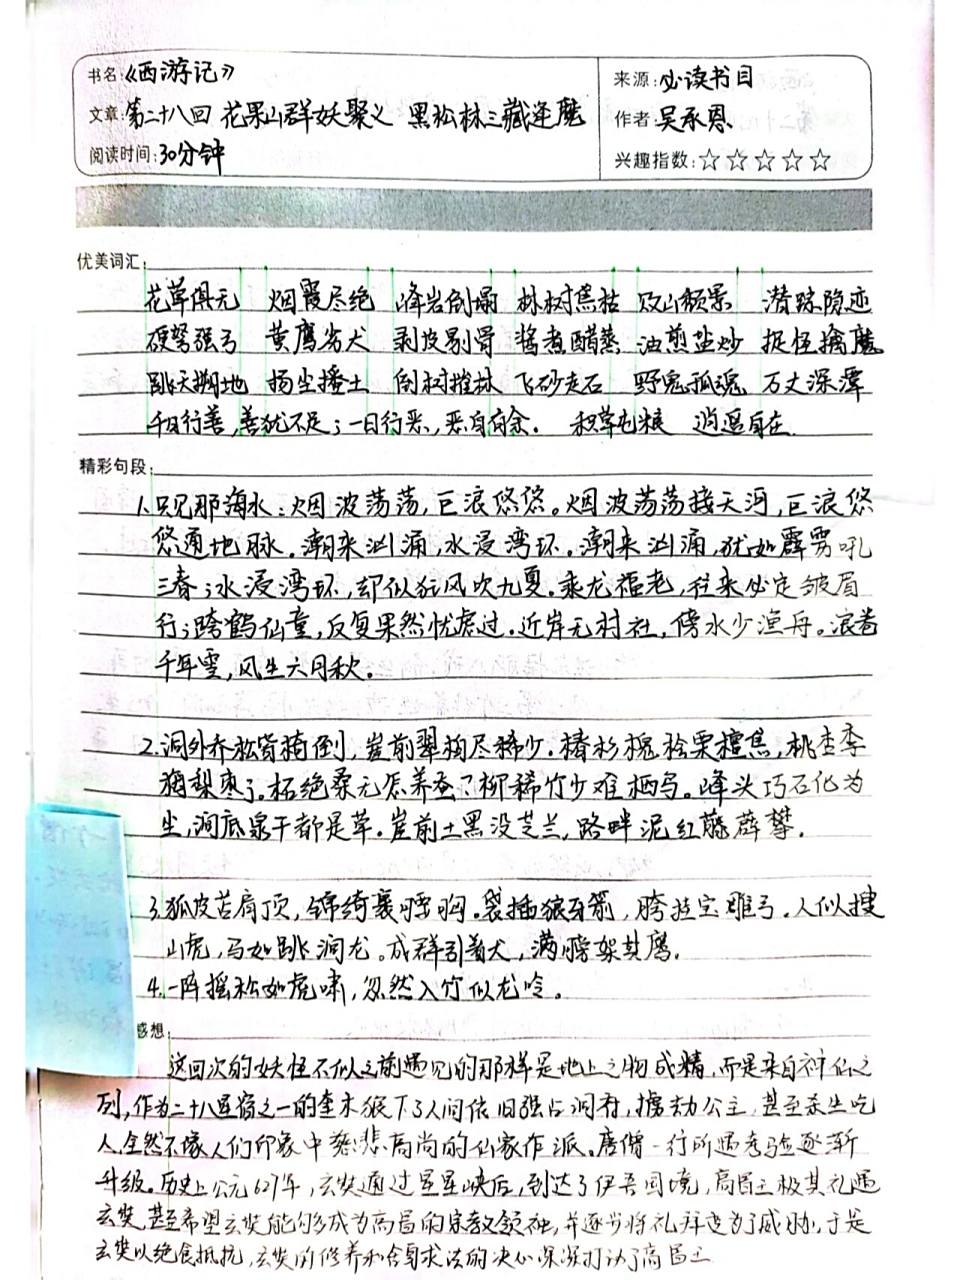 书名:《西游记》
来源:必读书目
文章:第二十八回 花果山群妖聚义 黑松林三藏逢魔
作者:吴承恩
阅读时间:30分钟
兴趣指数:☆☆☆☆☆
优美词汇:
花草俱无 烟霞尽绝 峰岩倒塌 林树焦枯 败山颓景 潜踪隐迹
硬弩强弓 黄鹰劣犬 剥皮剔骨 酱煮醋蒸 油煎盐炒 捉怪擒魔
跳天搠地 扬尘播土 倒树摧林 飞砂走石 野鬼孤魂 万丈深潭
千日行善,善犹不足;一日行恶,恶自有余. 积草屯粮 逍遥自在.
精彩句段:
1.只见那海水:烟波荡荡,巨浪悠悠。烟波荡荡接天河,巨浪悠
悠通地脉.潮来汹涌,水浸湾环.潮来汹涌,犹如霹雳吼
三春;水浸湾环,却似狂风吹九夏.乘龙福老,往来必定皱眉
行;跨鹤仙童,反复果然忧虑过.近岸无村社,傍水少渔舟。浪卷
千年雪,风生六月秋。
2.洞外乔松皆倚倒,崖前翠柏尽稀少.椿杉槐桧栗檀焦,桃杏李
梅梨枣了.柘绝桑无怎养蚕?柳稀竹少难栖鸟。峰头巧石化为
尘,涧底泉干都是草.崖前土黑没芝兰,路畔泥红藤薜攀.
3.狐皮苫肩顶,锦绮裹腰胸.袋插狼牙箭,胯挂宝雕弓.人似搜
山虎,马如跳涧龙。成群引着犬,满膀架其鹰.
4.一阵摇松如虎啸,忽然入竹似龙吟。
感想:
这回次的妖怪不似之前遇见的那样是地上之物成精,而是来自神仙之
列,作为二十八星宿之一的奎木狼下了人间依旧强占洞府,掳劫公主,甚至杀生吃
人,全然不像人们印象中慈悲高尚的仙家作派。唐僧一行所遇考验逐渐
升级。历史上公元627年,玄奘通过星星峡后,到达了伊吾国境,高昌王极其礼遇
玄奘,甚至希望玄奘能够成为高昌的宗教领袖,并逐步将礼拜变为了威胁,于是
玄奘以绝食抵抗,玄奘的修养和舍身求法的决心深深打动了高昌王